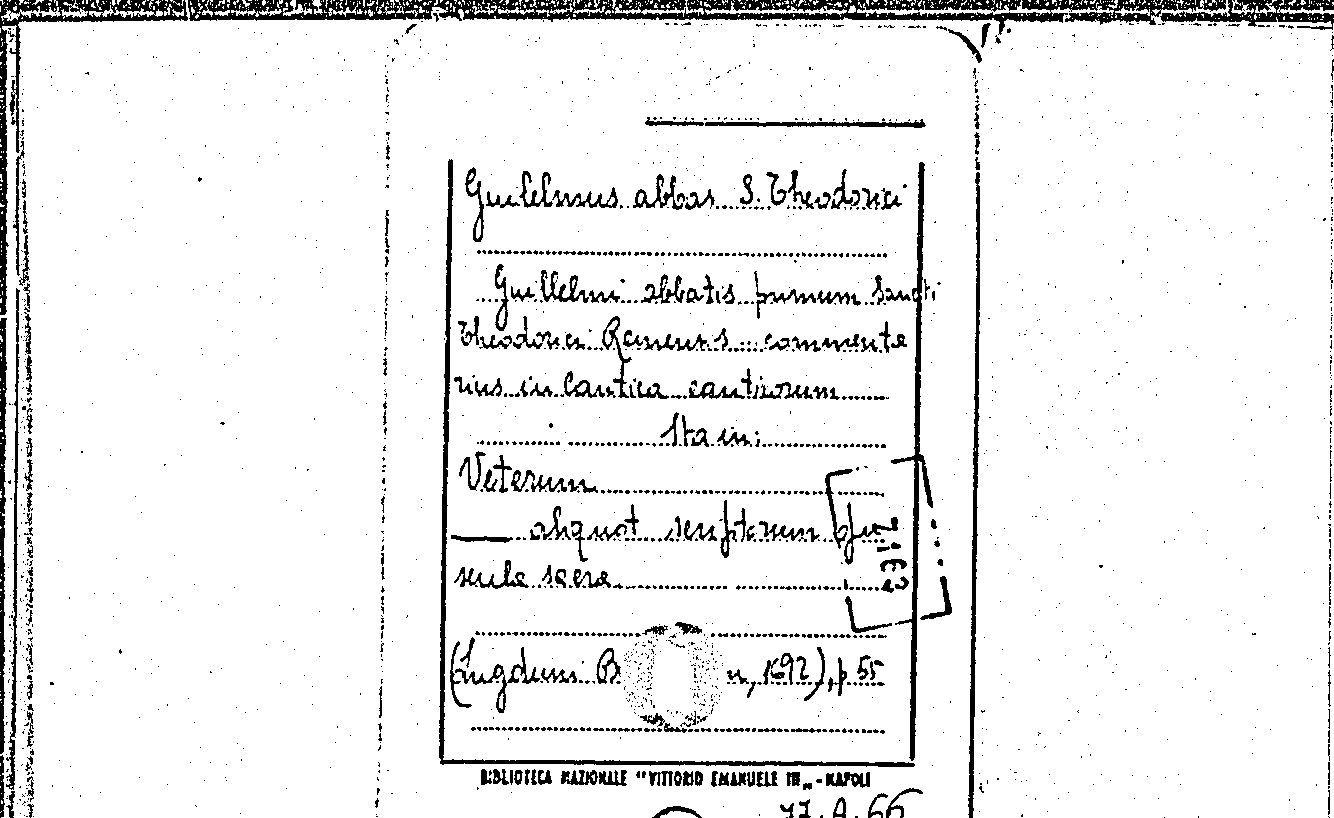 Guilelmus abbas S. Theodorici
Guillelmi abbatis primum Sancti
Theodorici Remensis .. commenta
rius in Cantica canticorum
Sta in:
Veterum
___ aliquot scriptorum opu
scula sacra
(Lugduni B n, 1692), p 55
7162
BIBLIOTECA NAZIONALE "VITTORIO EMANUELE III„ - NAPOLI
77.A.66